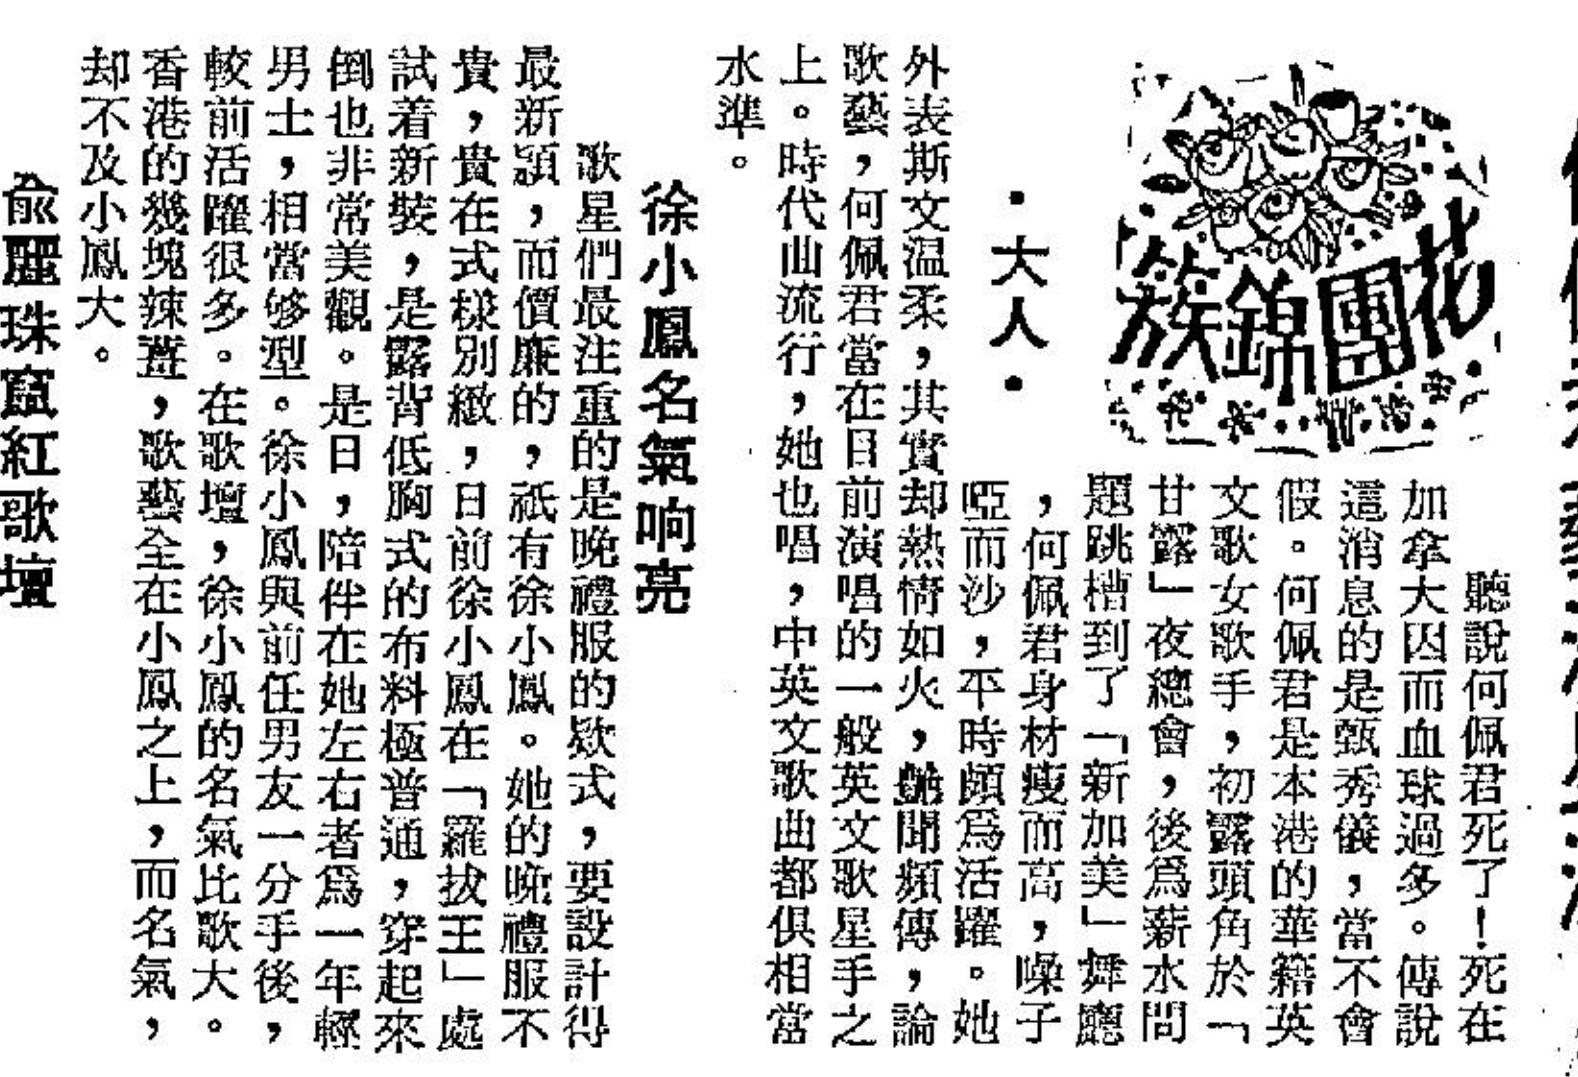 花團錦族
·大人·
聽說何佩君死了！死在
加拿大因而血球過多。傳說
這消息的是甄秀儀，當不會
假。何佩君是本港的華籍英
文歌女歌手，初露頭角於「
甘露」夜總會，後爲薪水問
題跳槽到了「新加美」舞廳
，何佩君身材瘦而高，嗓子
啞而沙，平時頗爲活躍。她
外表斯文温柔，其實却熱情如火，艷聞頻傳，論
歌藝，何佩君當在目前演唱的一般英文歌星手之
上。時代曲流行，她也唱，中英文歌曲都俱相當
水準。
徐小鳳名氣响亮
歌星們最注重的是晚禮服的欵式，要設計得
最新頴，而價廉的，祇有徐小鳳。她的晚禮服不
貴，貴在式樣別緻，日前徐小鳳在「羅拔王」處
試着新裝，是露背低胸式的布料極普通，穿起來
倒也非常美觀。是日，陪伴在她左右者爲一年輕
男士，相當够型。徐小鳳與前任男友一分手後，
較前活躍很多。在歌壇，徐小鳳的名氣比歌大。
香港的幾塊辣薑，歌藝全在小鳳之上，而名氣，
却不及小鳳大。
俞麗珠竄紅歌壇